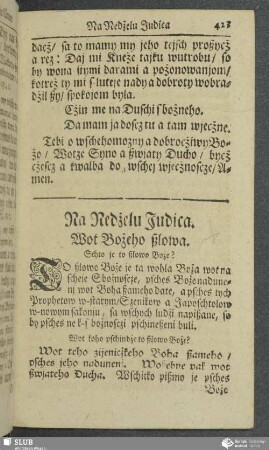 Na Nedżelu Judica 423
dacż/ sa to mamy my jeho tejsch proßycż
a rez: Daj mi Kneże tajku wutrobu/ so
by wona ßnymi darami a pożonowanjom/
kotrez ty mi s luteje nady a dobroty wobra-
dżil ßy/ spokojom byla.
Cżin me na Duschi sbożneho.
Da mam ja doscz tu a tam wjecżne.
Tebi o wschehomozny a dobrocżiwy Bo-
żo/ Wotze Syno a ßwjaty Ducho/ bycż
cżescz a kwalba do wschej wjecżnoscże/ A-
men.
Na Nedżelu Judica.
Wot Bożeho ßlowa.
Schto je to ßlowo Boże?
TO ßlowo Boże je ta wohla Boża wot na
scheje Sbożnoscje, psches Bożo nadune-
nj wot Boha ßameho date, a psches tych
Prophetow w starym/ Sżenikow a Japoschtolow
w nowym sakonju, sa wschych ludżi napißane, so
by psches ne k-j sbożnosczi pschineßeni buli.
Wot koho pschindże to ßlowo Boże?
Wot teho zijenicżkeho Boha ßameho/
psches jeho nadunenj. Woßebye pak wot
ßwjateho Ducha. Wschitko pißmo je psches
Boże
SLUB